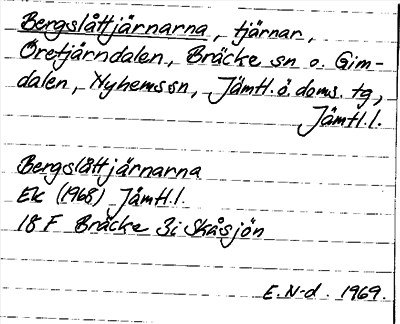 Bergslåttjärnarna, tjärnar,
Öretjärndalen, Bräcke sn o. Gim-
dalen, Nyhemssn, Jämtl. ö. doms. tg,
Jämtl. l.
Bergslåttjärnarna
Ek (1968) Jämtl. l.
18 F Bräcke 3i Skåsjön
E. N-d. 1969.